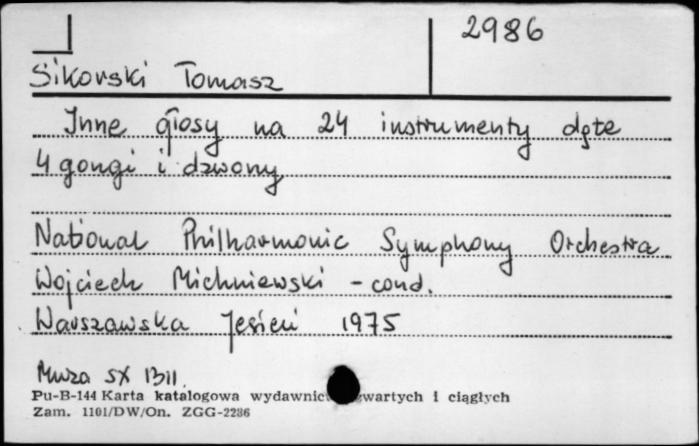 2986
Sikorski Tomasz
Inne głosy na 24 instrumenty dęte
4 gongi i dzwony
National Philharmonic Symphony Orchestra
Wojciech Michniewski - cond.
Warszawska Jesień 1975
Muza SX 1311
Pu-B-144 Karta katalogowa wydawnic wartych i ciągłych
Zam. 1101/DW/On. ZGG-2286